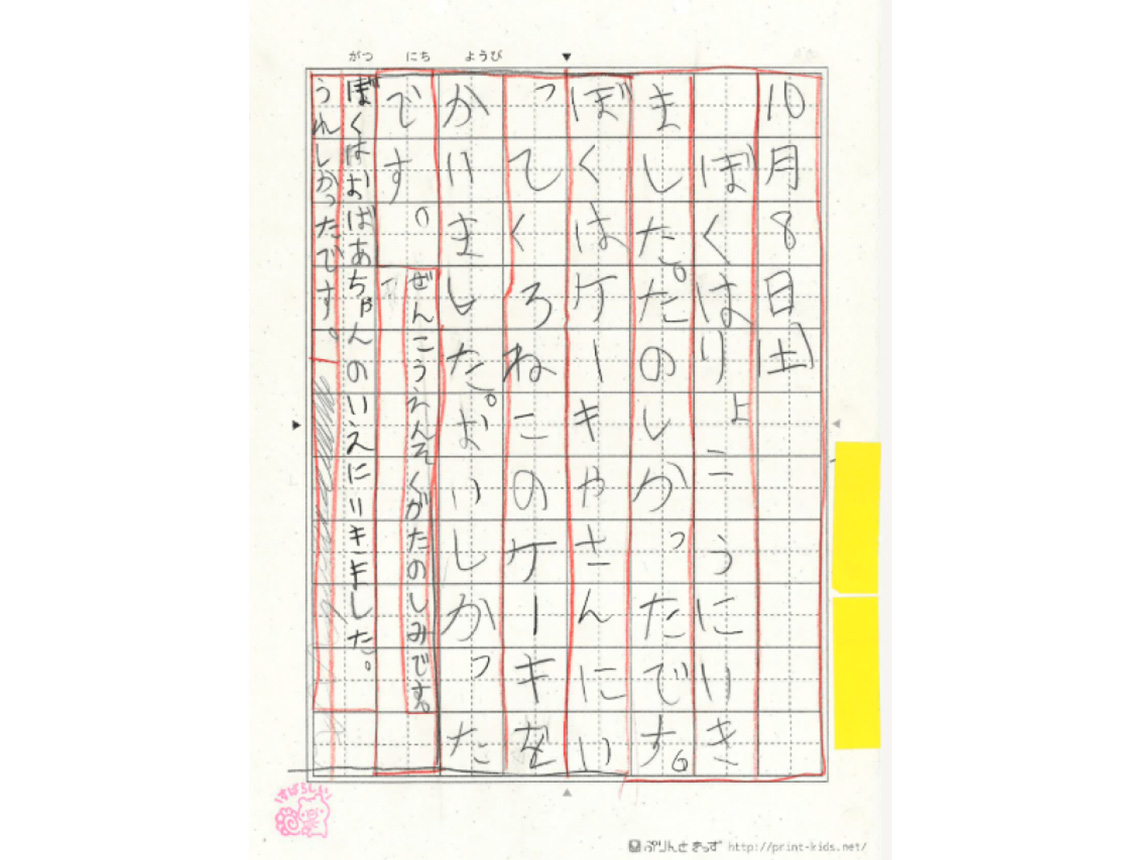 がつ にち ようび
10月8日(土)
ぼくはりょこうにいき
ました。たのしかったです。
ぼくはケーキやさんにい
ってくろねこのケーキを
かいました。おいしかった
です。
ぜんこうえんそくがたのしみです。
ぼくはおばあちゃんのいえにいきました。
うれしかったです。
すばらしい
ぷりんときっず http://print-kids.net/